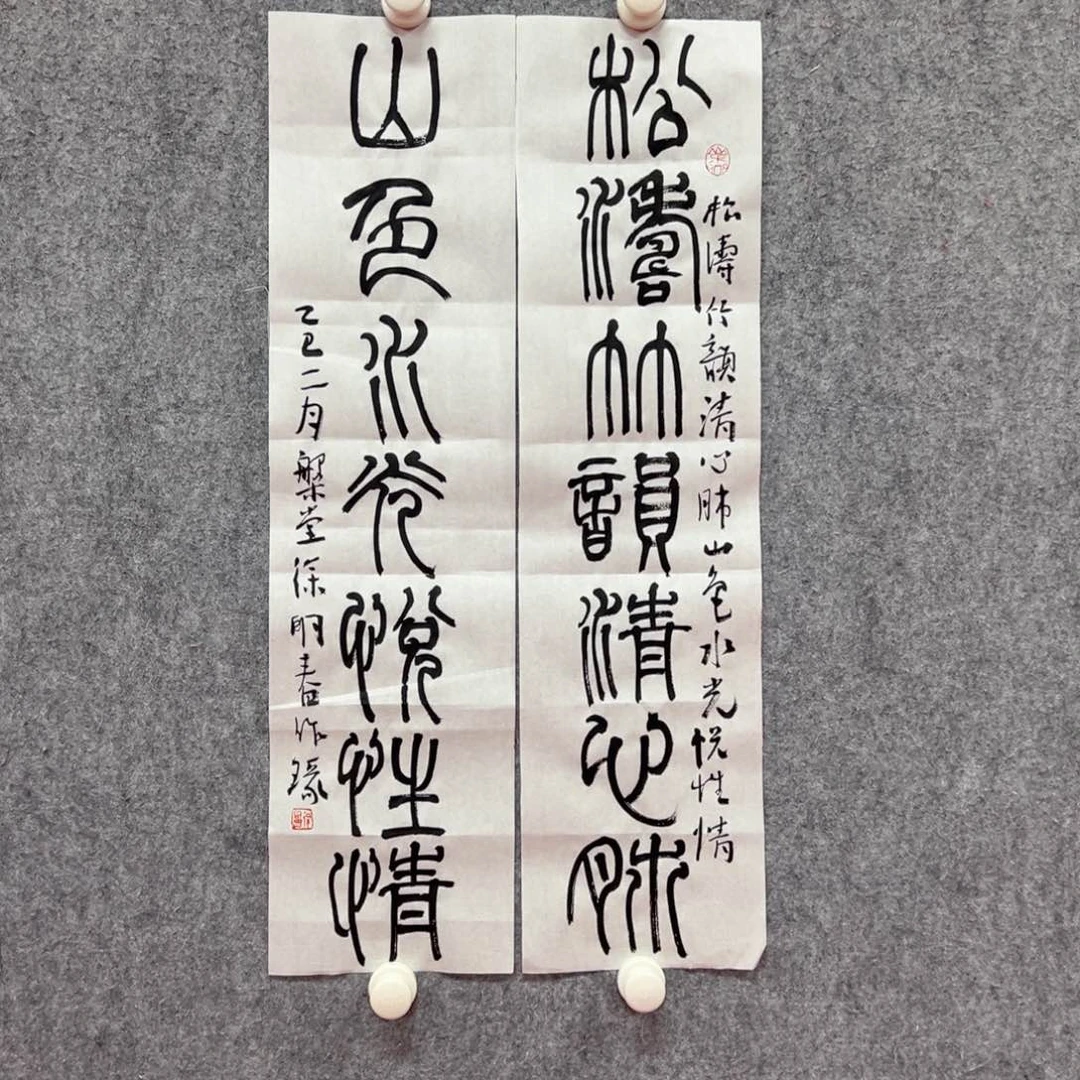 松濤竹韻清心肺山色水光悦性情
松濤竹韻清心肺
山色水光悦性情
乙巳二月槃堂徐明春作篆